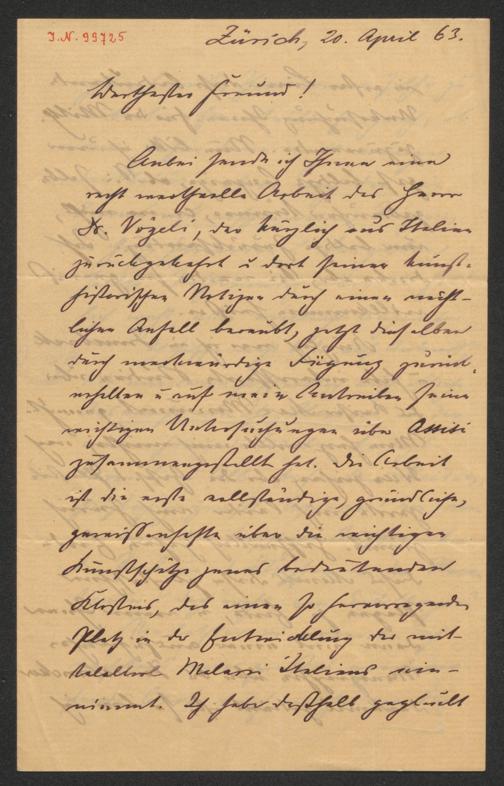 I.N. 99725
Zürich, 20. April 63.
Werthester Freund!
Anbei sende ich Ihnen eine
recht werthvolle Arbeit des Herrn
Dr. Vögeli, der kürzlich aus Italien
zurückgekehrt u dort seiner kunst-
historischen Notizen durch einen nächt-
lichen Anfall beraubt, jetzt dieselben
durch merkwürdige Fügung zurück-
erhalten u auf mein Antreiben seine
wichtigen Untersuchungen über Assisi
zusammengestellt hat. Die Arbeit
ist die erste vollständige, gründliche,
gewissenhafte über die wichtigen
Kunstschätze jenes bedeutenden
Klosters, das einen so hervorragenden
Platz in der Entwickelung der mit-
telalterl Malerei Italiens ein-
nimmt. Ich habe deßhalb geglaubt